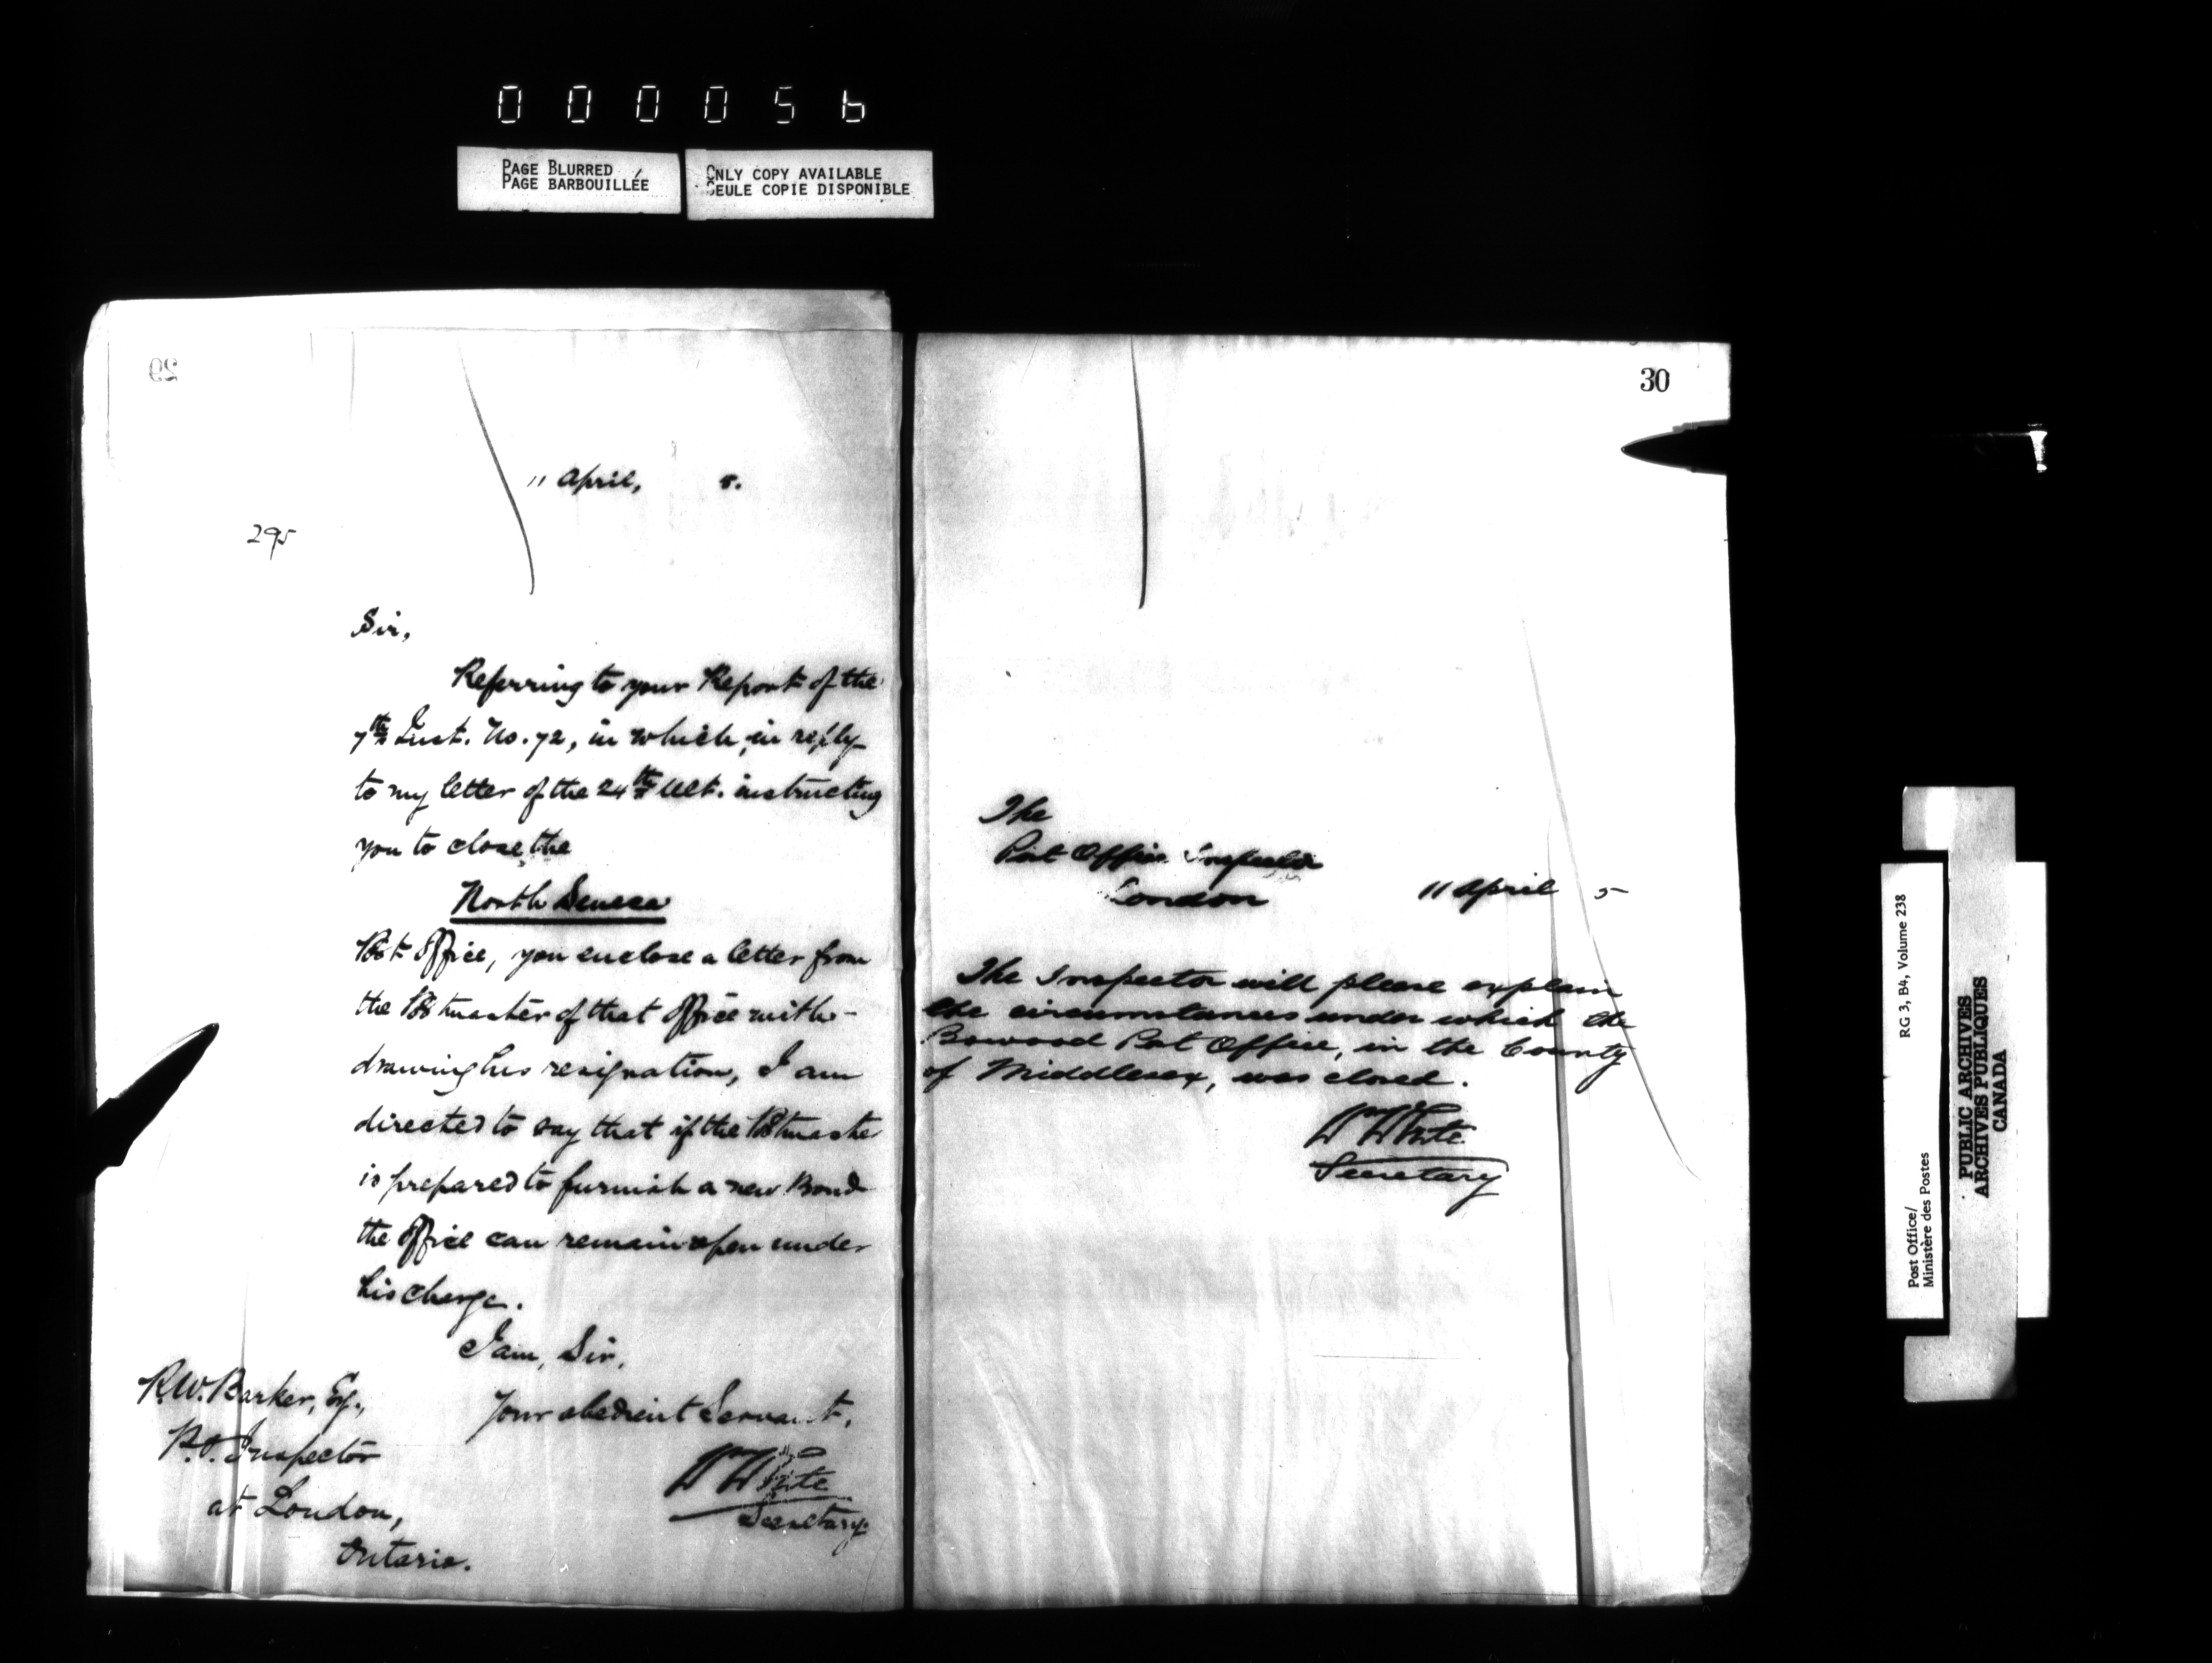 000056
PAGE BLURRED
PAGE BARBOUILLÉE
ONLY COPY AVAILABLE
SEULE COPIE DISPONIBLE
29
11 April, 5.
295
Sir,
Referring to your Report of the
7th Inst. No. 72, in which, in reply
to my letter of the 24th Ult. instructing
you to close the
North Seneca
Post Office, you enclose a letter from
the Postmaster of that Office with-
drawing his resignation, I am
directed to say that if the Postmaste
is prepared to furnish a new Bond
the Office can remain open under
his charge.
I am, Sir,
Your obedient Servant,
W White
Secretary.
R.W. Barker, Esq.,
P.O. Inspector
at London,
Ontario.
30
The
Post Office Inspector
London
11 April 5
The Inspector will please explain
the circumstances under which the
Bowood Post Office, in the County
of Middlesex, was closed.
W White
Secretary
RG 3, B4, Volume 238
Post Office/
Ministère des Postes
PUBLIC ARCHIVES
ARCHIVES PUBLIQUES
CANADA